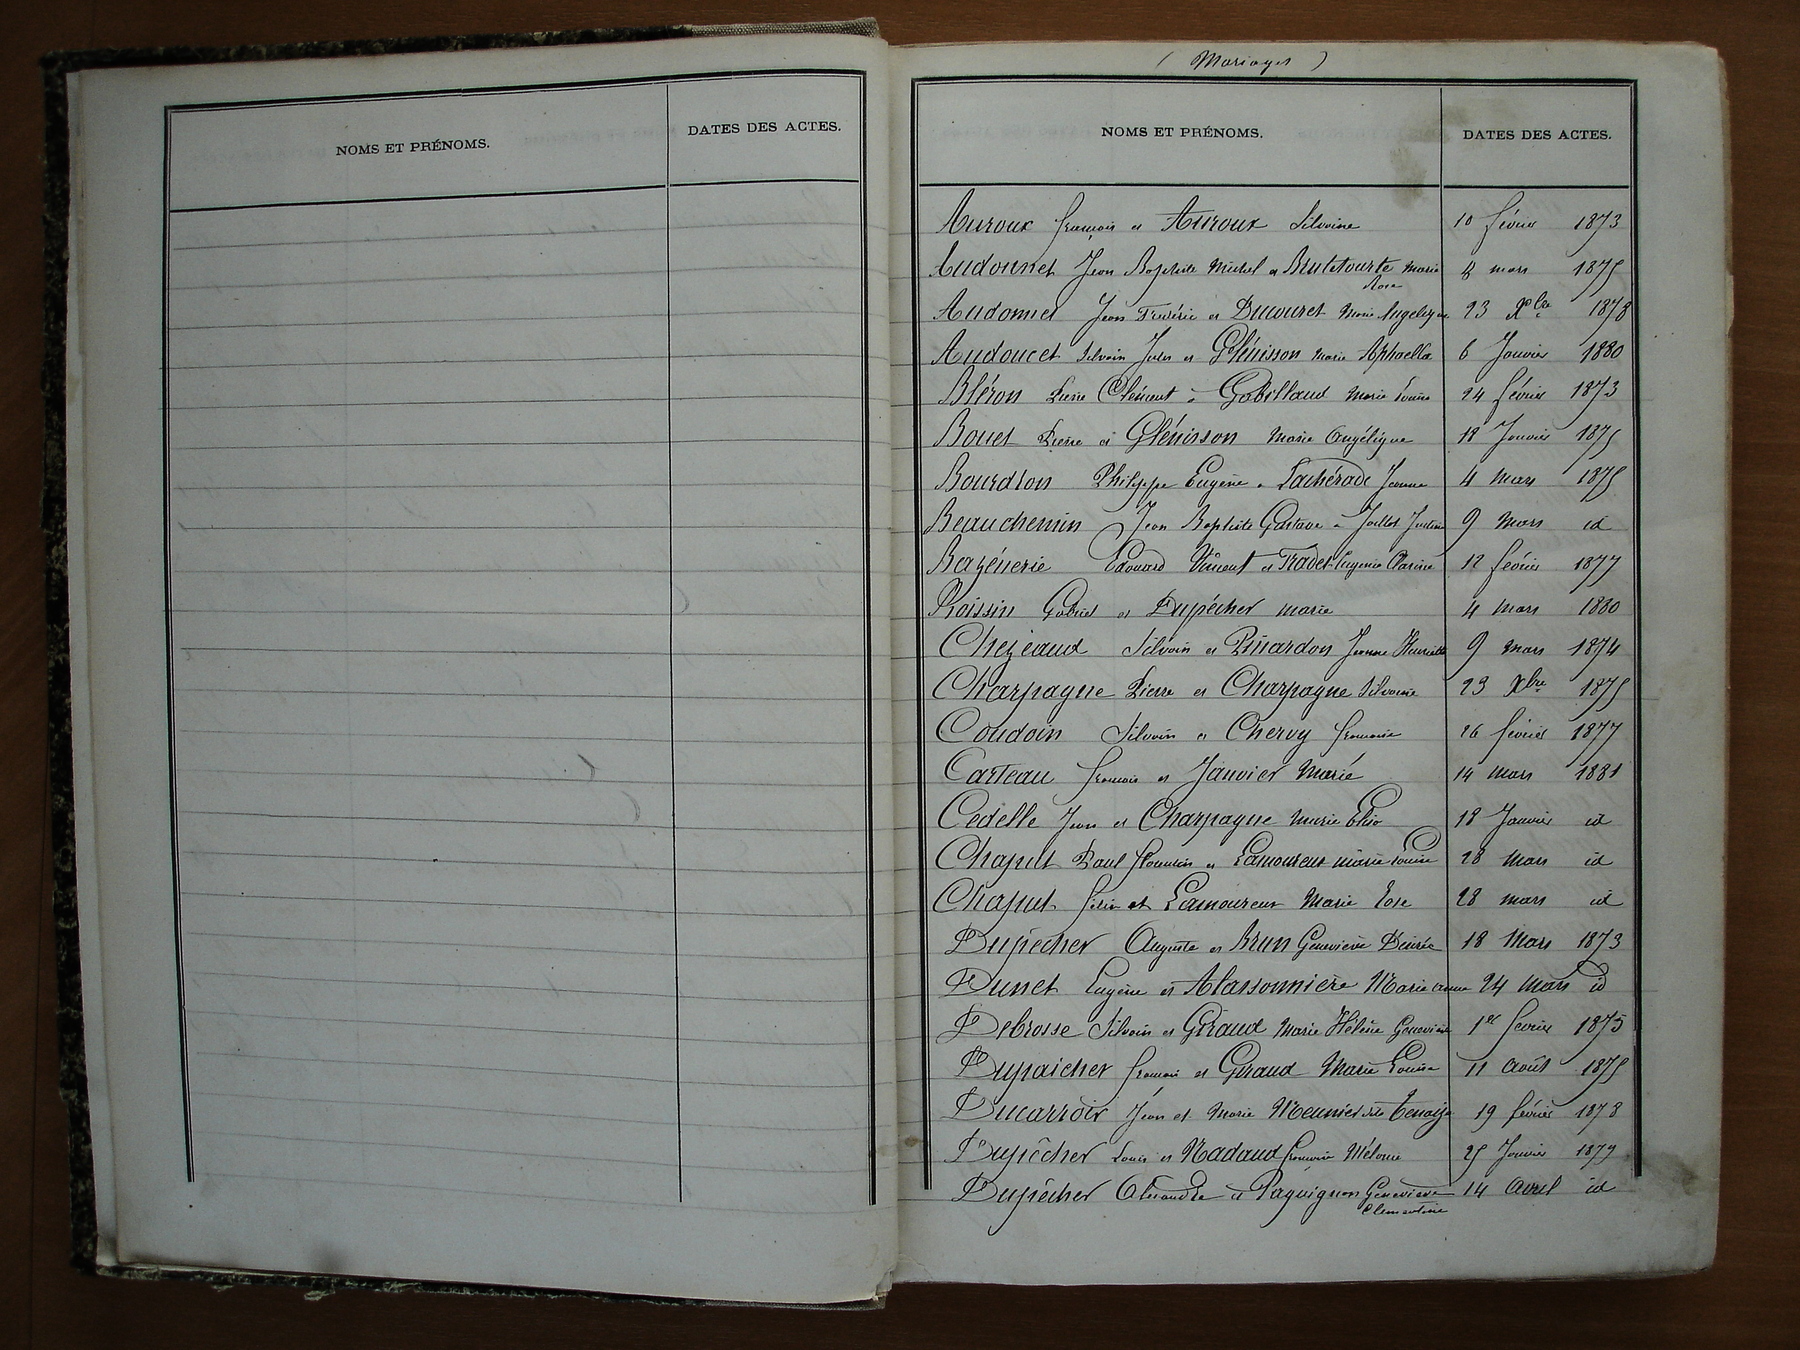 NOMS ET PRÉNOMS. DATES DES ACTES.
( Mariages )
NOMS ET PRÉNOMS. DATES DES ACTES.
Auroux françois et Auroux Silvaine 10 février 1873
Audounet Jean Baptiste Michel et Brutetourte Marie 8 mars 1875
Rose
Audonnet Jean Frédéric et Ducouret Marie Angelique 23 Xbre 1878
Audoucet Silvain Jules et Glénisson Marie 6 Janvier 1880
Bléron Pierre Clément et Gobillaud Marie Louise 24 février 1873
Bouet Pierre et Glénisson Marie Angélique 18 Janvier 1875
Bourdton Philippe Eugène et Lachérade Jeanne 4 mars 1875
Beauchemin Jean Baptiste Gustave et Juillet 9 Mars id
Bazénerie Edouard Vincent et Tradet Eugénie Clarisse 12 février 1877
Roissin Gabriel et Dupécher marie 4 mars 1880
Chezeaud Silvain et Pinardon Jeanne Henriette 9 mars 1874
Charpagne Pierre et Charpagne Silvaine 23 Xbre 1875
Coudoin Silvain et Chervy françoise 26 février 1877
Carteau françois et Janvier Marie 14 mars 1881
Cédelle Jean et Charpagne Marie 18 Janvier id
Chaput Paul Florentin et Lamoureux marie Louise 28 mars id
Chaput félix et Lamoureux Marie Rose 28 mars id
Dupêcher Auguste et Brun Geneviève Désirée 18 Mars 1873
Dunet Eugène et Alassonnière Marie anne 24 mars id
Debrosse Silvain et Giraud Marie Hélène Geneviève 1er février 1875
Dupaicher françois et Giraud Marie Louise 11 août 1875
Ducarroir Jean et Marie Meunier dite 19 février 1878
Dupêcher Louis et Nadaud françoise Mélanie 25 Janvier 1879
Dupêcher Alexandre et Paquignon Geneviève 14 avril id
Clémentine